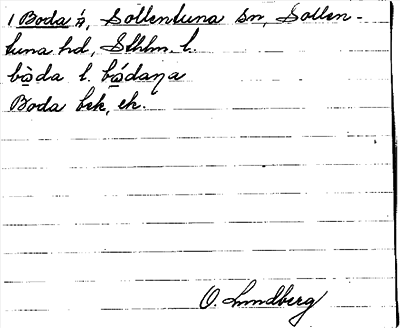 1 Boda s, Sollentuna sn, Sollen-
tuna hd, Sthlm. l.
bo̱̍da l. bo̱̍daŋa
Boda bek, ek.
O. Lundberg